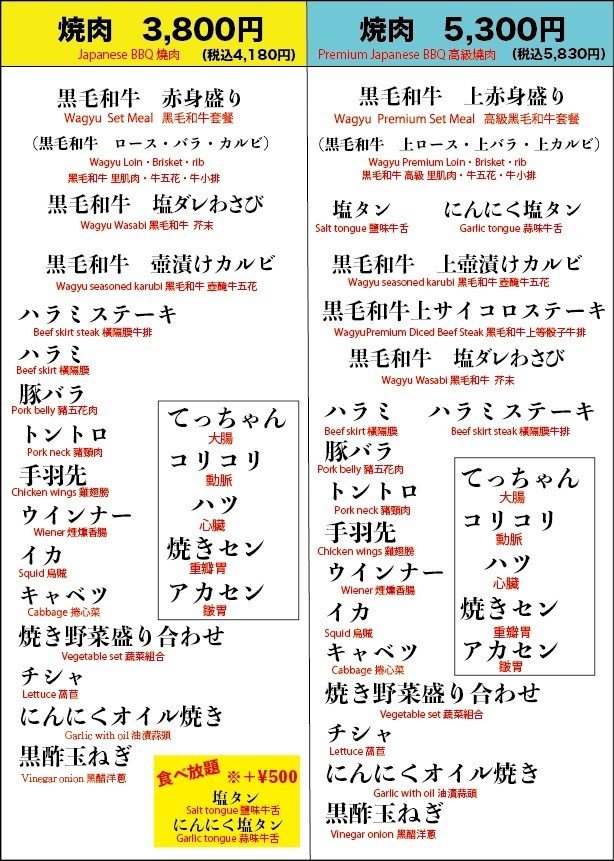 焼肉 3,800円
Japanese BBQ 燒肉 (税込4,180円)
黒毛和牛 赤身盛り
Wagyu Set Meal 黑毛和牛套餐
(黒毛和牛 ロース・バラ・カルビ)
Wagyu Loin・Brisket・rib
黑毛和牛 里肌肉・牛五花・牛小排
黒毛和牛 塩ダレわさび
Wagyu Wasabi 黑毛和牛 芥末
黒毛和牛 壺漬けカルビ
Wagyu seasoned karubi 黑毛和牛 壺醃牛五花
ハラミステーキ
Beef skirt steak 橫隔膜牛排
ハラミ
Beef skirt 橫隔膜
豚バラ
Pork belly 豬五花肉
トントロ
Pork neck 豬頸肉
手羽先
Chicken wings 雞翅膀
ウインナー
Wiener 煙燻香腸
イカ
Squid 烏賊
キャベツ
Cabbage 捲心菜
焼き野菜盛り合わせ
Vegetable set 蔬菜組合
チシャ
Lettuce 萵苣
にんにくオイル焼き
Garlic with oil 油漬蒜頭
黒酢玉ねぎ
Vinegar onion 黑醋洋蔥
てっちゃん
大腸
コリコリ
動脈
ハツ
心臓
焼きセン
重瓣胃
アカセン
皺胃
食べ放題 ※+¥500
塩タン
Salt tongue 鹽味牛舌
にんにく塩タン
Garlic tongue 蒜味牛舌
焼肉 5,300円
Premium Japanese BBQ 高級燒肉 (税込5,830円)
黒毛和牛 上赤身盛り
Wagyu Premium Set Meal 高級黑毛和牛套餐
(黒毛和牛 上ロース・上バラ・上カルビ)
Wagyu Premium Loin・Brisket・rib
黑毛和牛 高級 里肌肉・牛五花・牛小排
塩タン にんにく塩タン
Salt tongue 鹽味牛舌 Garlic tongue 蒜味牛舌
黒毛和牛 上壺漬けカルビ
Wagyu seasoned karubi 黑毛和牛 壺醃牛五花
黒毛和牛上サイコロステーキ
WagyuPremium Diced Beef Steak 黑毛和牛上等骰子牛排
黒毛和牛 塩ダレわさび
Wagyu Wasabi 黑毛和牛 芥末
ハラミ ハラミステーキ
Beef skirt 橫隔膜 Beef skirt steak 橫隔膜牛排
豚バラ
Pork belly 豬五花肉
トントロ
Pork neck 豬頸肉
手羽先
Chicken wings 雞翅膀
ウインナー
Wiener 煙燻香腸
イカ
Squid 烏賊
キャベツ
Cabbage 捲心菜
焼き野菜盛り合わせ
Vegetable set 蔬菜組合
チシャ
Lettuce 萵苣
にんにくオイル焼き
Garlic with oil 油漬蒜頭
黒酢玉ねぎ
Vinegar onion 黑醋洋蔥
てっちゃん
大腸
コリコリ
動脈
ハツ
心臓
焼きセン
重瓣胃
アカセン
皺胃